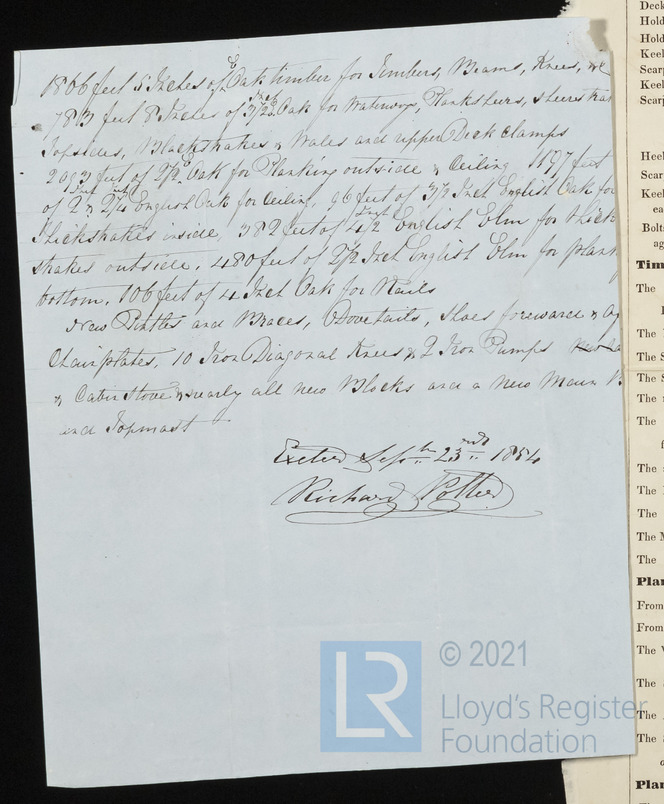 1866 feet 5 Inches of E Oak timber for Timbers, Beams, Knees, &c
783 feet 8 Inches of 3/2 Inch E Oak for Waterways, Plankshears, sheerstrak
Topsides, Blackstrakes & Wales and upper Deck Clamps
2093 feet of 2½ E Oak for Planking outside & Ceiling 1197 feet
of 2 Inch & 2¼ Inch English Oak for Ceiling, 96 feet of 3½ Inch English Oak for
Thickstrakes inside, 382 feet of 4½ Inch English Elm for thick
strakes outside, 480 feet of 2½ Inch English Elm for plank
bottom. 106 feet of 4 Inch Oak for Rails
New Pintles and Braces, Dovetails, Shoes foreward &
Chainplates, 10 Iron Diagonal Knees & 2 Iron Pumps
& Cabin Stove & nearly all new Blocks and a New Main B
and Topmast
Exeter Septbr 23rd 1854
Richard Potter
© 2021
LR
Lloyd's Register
Foundation
Deck
Hold
Hold
Keel
Scar
Keel
Scar
Heel
Scar
Keel
ea
Bolt
ag
Tim
The
The
The S
The S
The
The
The
The
The
The M
The
Plan
From
From
The
The
The
The
Plan